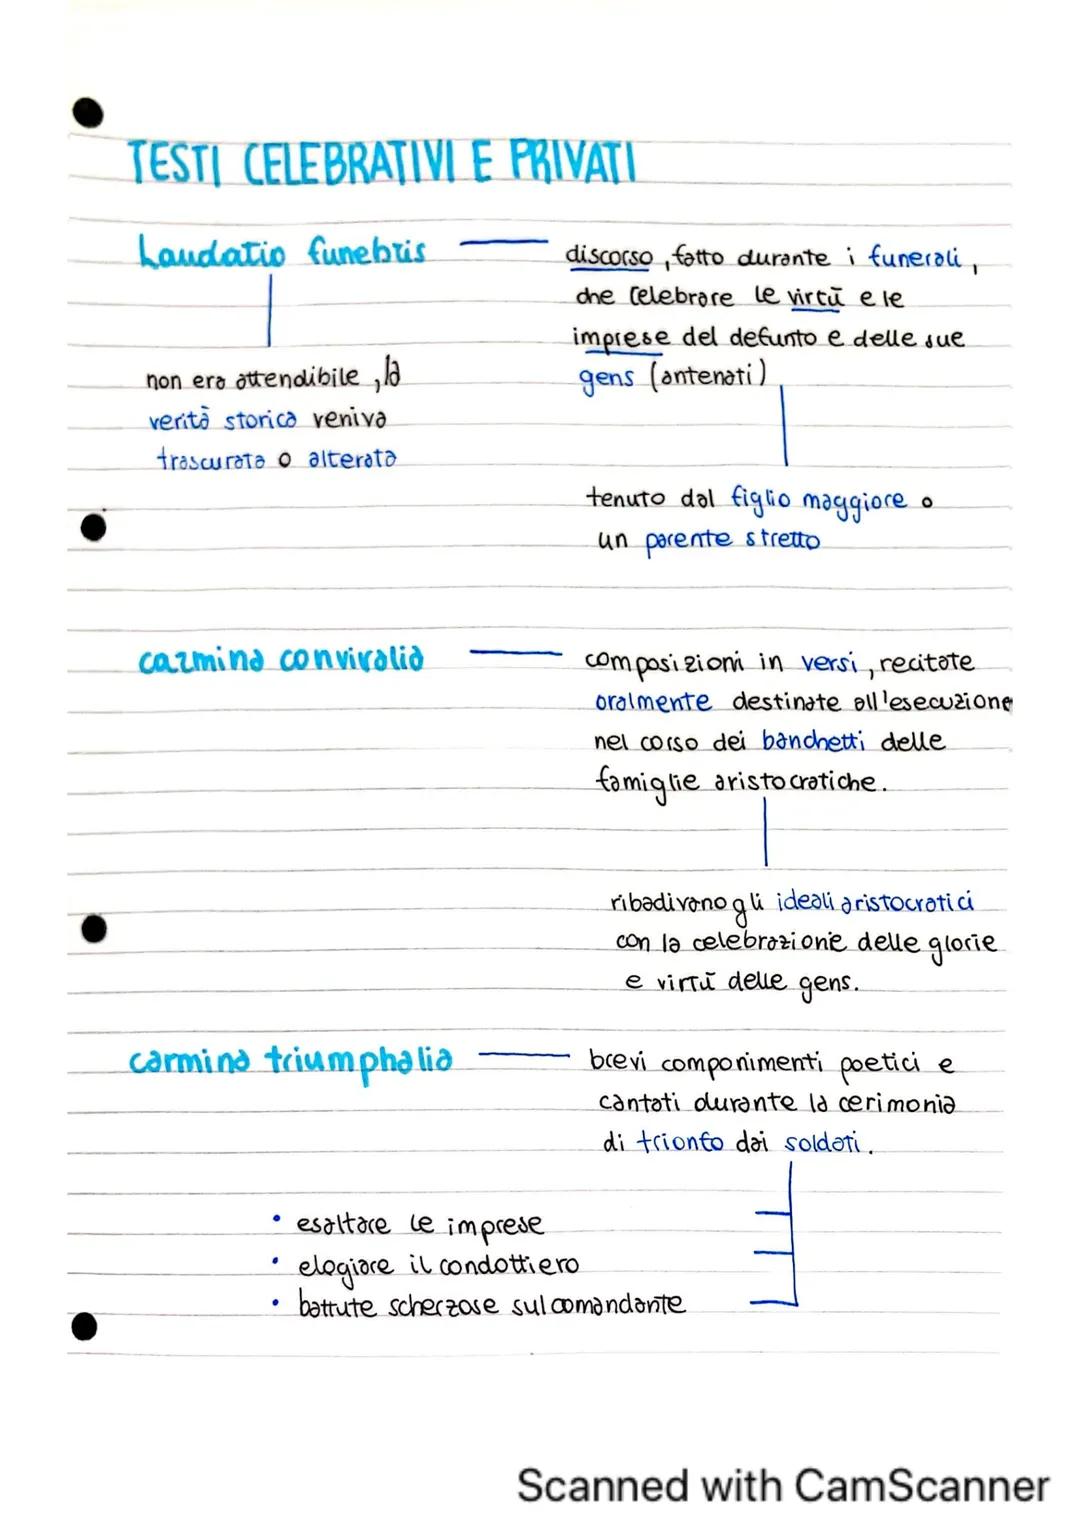 TESTI CELEBRATIVI E PRIVATI
Laudatio funebris
discorso, fatto durante i funerali,
che celebrare le virtù e le
imprese del defunto e delle sue
gens (antenati)
non era attendibile, la
verità storica veniva
trascurata o alterata
tenuto dal figlio maggiore o
un parente stretto
carmina conviralia
composizioni in versi, recitate
oralmente destinate all'esecuzione
nel corso dei banchetti delle
famiglie aristocratiche.
ribadivano gli ideali aristocratici
con la celebrazione delle glorie
e virtù delle gens.
carmina triumphalia
brevi componimenti poetici e
cantati durante la cerimonia
di trionfo dai soldati.
• esaltare le imprese
• elogiare il condottiero
• battute scherzose sul comandante
Scanned with CamScanner